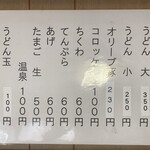 うどん 大 350
うどん 小 250
オリーブ豚 230円
コロッケ 100円
ちくわ 100円
てんぷら 100円
あげ 60円
たまご 生 50円
温泉 100円
うどん玉 100円